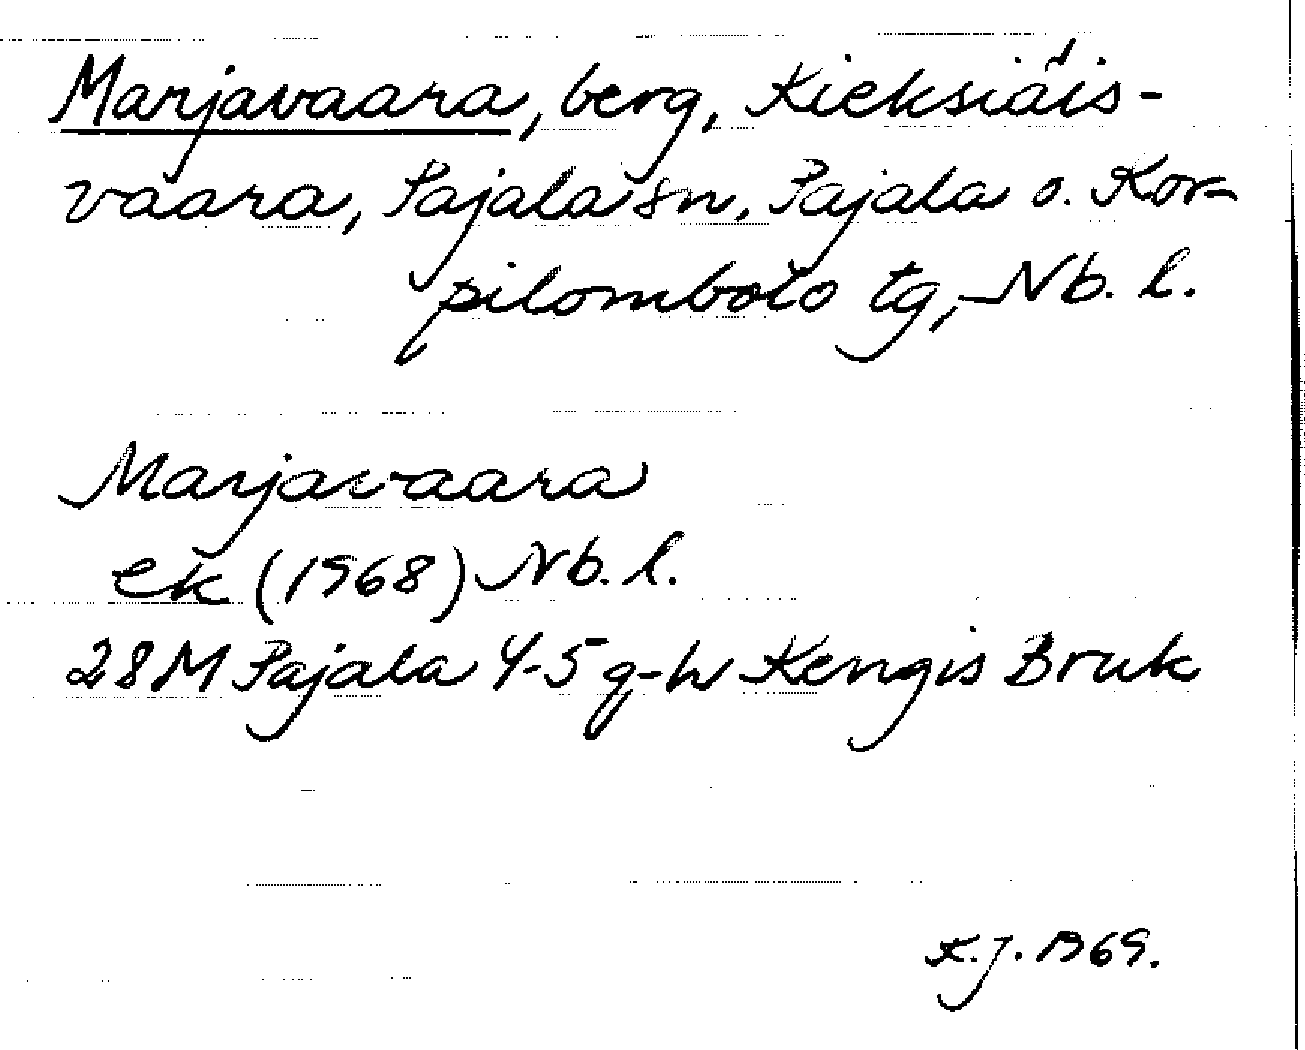 Marjavaara, berg, Kieksiäis-
vaara, Pajala sn, Pajala o. Kor-
pilombolo tg, Nb. l.
Marjavaara
ek (1968) Nb. l.
28M Pajala 4-5 g-h Kengis Bruk
K.J. 1969.